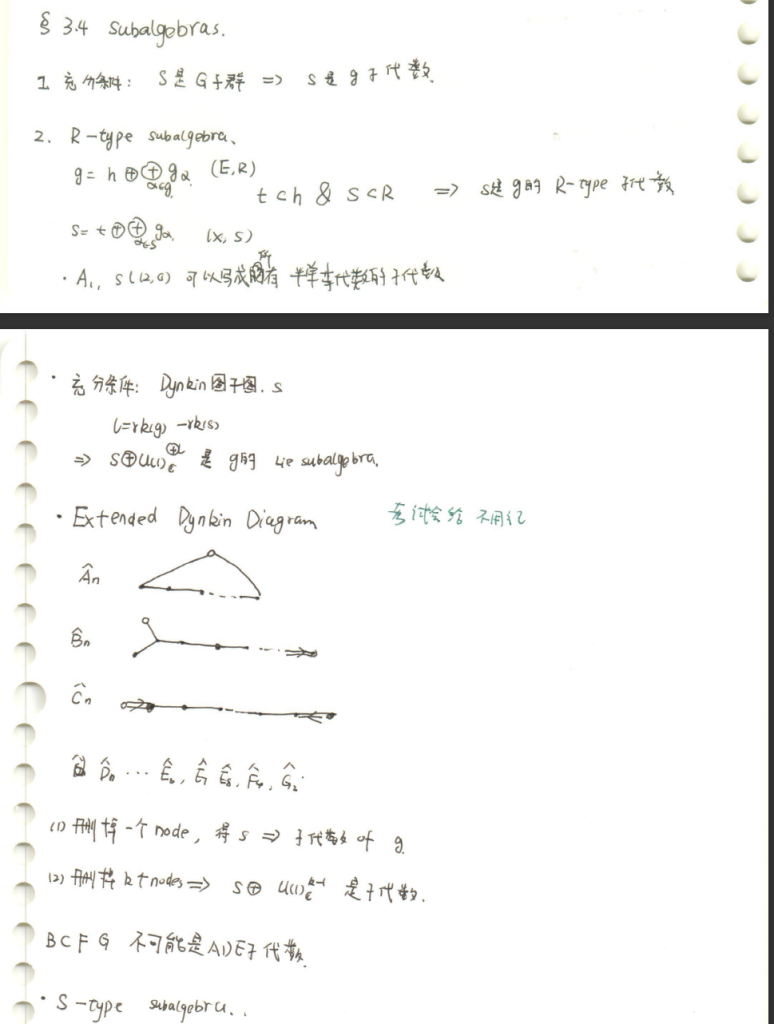 § 3.4 Subalgebras.
1 充分条件: S是G子群 => s是g子代数.
2. R-type subalgebra、
g = h ⊕ ⊕ gα (E,R)
α∈g
t⊂h & S⊂R => s是g的 R-type 子代数
s = t ⊕ ⊕ gα (X, S)
α∈S
· A₁, sl(2,C) 可以写成所有 半单李代数的子代数
· 充分条件: Dynkin图子图. s
l=rk(g) -rk(s)
=> s⊕u(1)_C^⊕l 是 g的 Lie subalgebra.
· Extended Dynkin Diagram 考试会给 不用记
Ân
B̂n
Ĉn
D̂n ... Ê6, Ê7 Ê8, F̂4, Ĝ2.
(1) 删掉一个node, 得 s => 子代数 of g.
(2) 删掉k个nodes => s⊕ u(1)_C^k-1 是子代数.
B C F G 不可能是ADE子代数.
· S-type subalgebra..